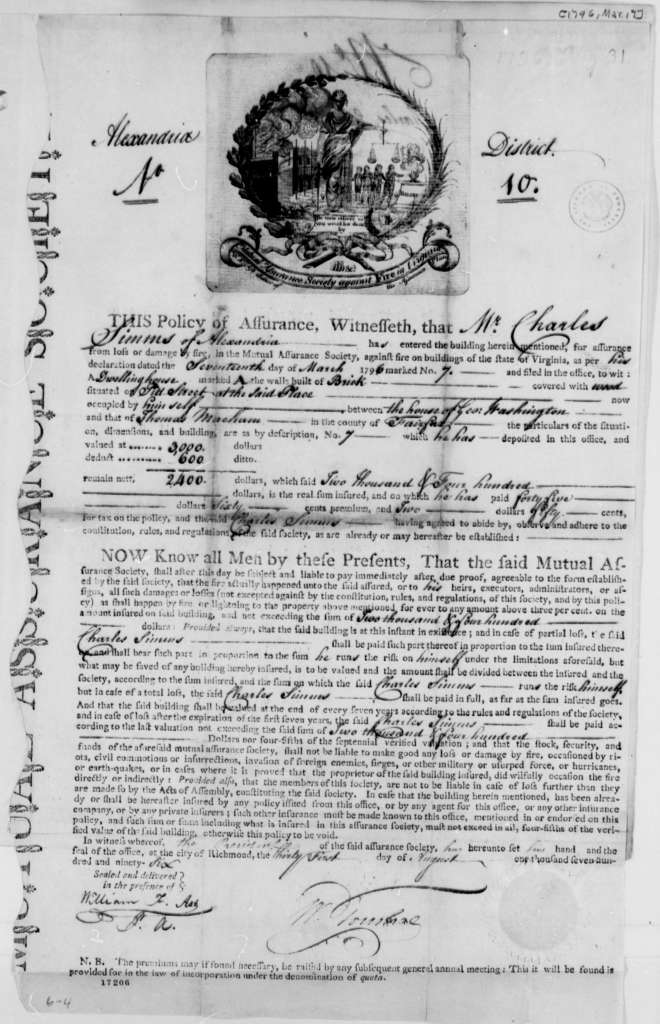 [1796, Mar. 17]
31
Alexandria District.
No 10.
Assurance Society against Fire in Virginia
MUTUAL ASSURANCE SOCIETY
THIS Policy of Aſſurance, Witneſſeth, that Mr. Charles
Simms of Alexandria has entered the building herein mentioned, for aſſurance
from loſs or damage by fire, in the Mutual Aſſurance Society, againſt fire on buildings of the ſtate of Virginia, as per his
declaration dated the Seventeenth day of March 1796 marked No. 7. and filed in the office, to wit:
A Dwelling house marked A the walls built of Brick covered with wood
ſituated on Street at the said Place now
occupied by himself between the house of Geo. Washington
and that of Thomas in the county of Fairfax the particulars of the ſituati-
on, dimenſions, and building, are as by deſcription, No. 7 which he has depoſited in this office, and
valued at 3,000. dollars
deduct 600 ditto.
remain nett, 2,400 dollars, which ſaid Two thousand & Four hundred
dollars, is the real ſum inſured, and on which he has paid forty five
dollars Sixty cents premium, and Two dollars fifty cents,
for tax on the policy, and the ſaid Charles Simms having agreed to abide by, obſerve and adhere to the
conſtitution, rules, and regulations of the ſaid ſociety, as are already or may hereafter be eſtabliſhed:
NOW Know all Men by theſe Preſents, That the ſaid Mutual Aſ-
ſurance Society, ſhall after this day be ſubject and liable to pay immediately after, due proof, agreeable to the form eſtabliſh-
ed by the ſaid ſociety, that the fire actually happened unto the ſaid aſſured, or to his heirs, executors, adminiſtrators, or aſ-
ſigns, all ſuch damages or loſſes (not excepted againſt by the conſtitution, rules, and regulations, of this ſociety, and by this poli-
cy) as ſhall happen by fire or lightning to the property above mentioned for ever to any amount above three per cent. on the
amount inſured on ſaid building, and not exceeding the ſum of Two thousand & four hundred
dollars: Provided always, that the ſaid building is at this inſtant in exiſtence; and in caſe of partial loſs, the ſaid
Charles Simms ſhall be paid ſuch part thereof in proportion to the ſum inſured there-
on, and ſhall bear ſuch part in proportion to the ſum he runs the riſk on himself under the limitations aforeſaid, but
what may be ſaved of any building hereby inſured, is to be valued and the amount ſhall be divided between the inſured and the
ſociety, according to the ſum inſured, and the ſum on which the ſaid Charles Simms runs the riſk himself,
but in caſe of a total loſs, the ſaid Charles Simms ſhall be paid in full, as far as the ſum inſured goes.
And that the building ſhall be valued at the end of every ſeven years according to the rules and regulations of the ſociety,
and in caſe of loſs after the expiration of the firſt ſeven years, the ſaid Charles Simms ſhall be paid ac-
cording to the laſt valuation not exceeding the ſaid ſum of Two thousand & four hundred
Dollars nor four-fifths of the ſeptennial verified valuation; and that the ſtock, ſecurity, and
funds of the aforeſaid mutual aſſurance ſociety, ſhall not be liable to make good any loſs or damage by fire, occaſioned by ri-
ots, civil commotions or inſurrections, invaſion of foreign enemies, ſieges, or other military or uſurped force, or hurricanes,
or earth-quakes, or in caſes where it is proved that the proprietor of the ſaid building inſured, did wilfully occaſion the fire
directly or indirectly: Provided alſo, that the members of this ſociety, are not to be liable in caſe of loſs further than they
are made ſo by the Acts of Aſſembly, conſtituting the ſaid ſociety. In caſe that the building herein mentioned, has been alrea-
dy or ſhall be hereafter inſured by any policy iſſued from this office, or by any agent for this office, or any other inſurance
company, or by any private inſurers; ſuch other inſurance muſt be made known to this office, mentioned in or endorſed on this
policy, and ſuch ſum or ſums including what is inſured in this aſſurance ſociety, muſt not exceed in all, four-fifths of the veri-
fied value of the ſaid building, otherwiſe this policy to be void.
In witneſs whereof, the President of the ſaid aſſurance ſociety, has hereunto ſet his hand and the
ſeal of the office, at the city of Richmond, the thirty First day of August one thouſand ſeven hun-
dred and ninety-Six
Sealed and delivered
in the preſence of
William F. Ast
P. A.
N. B. The premiums may if found neceſſary, be raiſed by any ſubſequent general annual meeting: This it will be found is
provided for in the law of incorporation under the denomination of quota.
17206
6-4